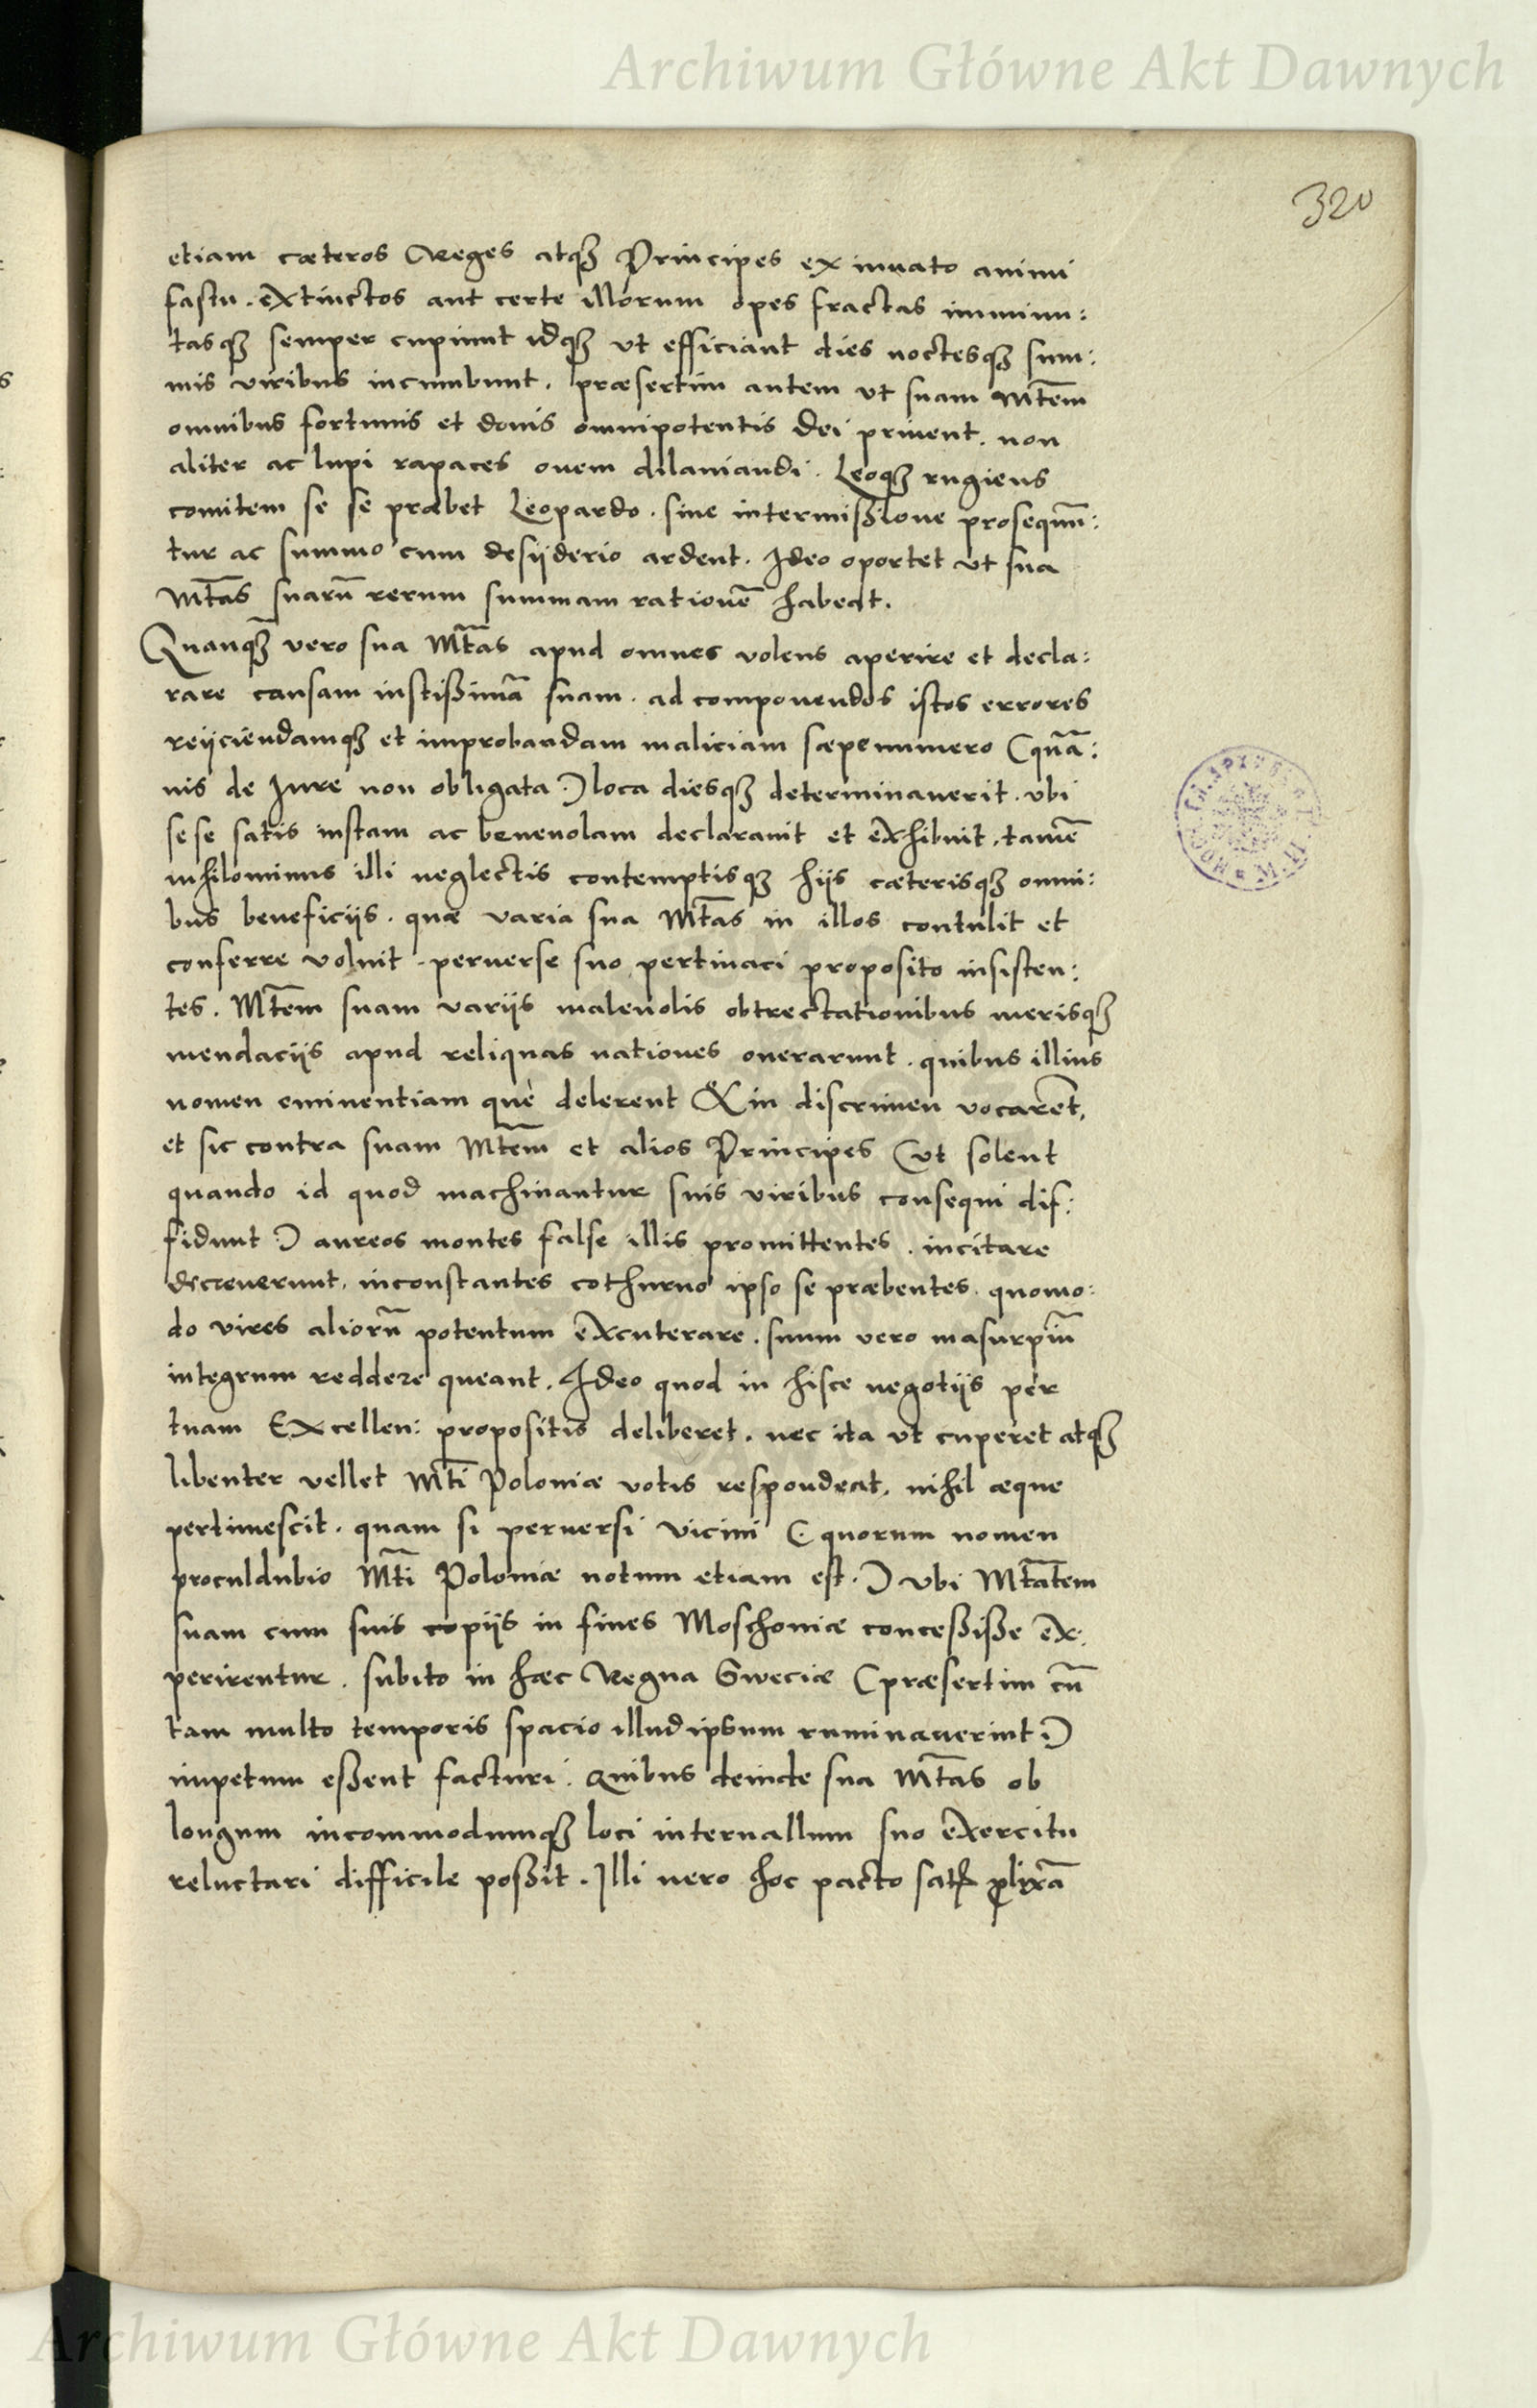 Archiwum Główne Akt Dawnych
320
etiam cæteros Reges atqꝫ Principes ex innato animi
fastu. extinctos aut certe illorum opes fractas imminu:
tasqꝫ semper cupiunt idqꝫ vt efficiant dies noctesqꝫ sum:
mis viribus incumbunt. præsertim autem vt suam Mtem̄
omnibus fortunis et donis omnipotentis Dei priuent. non
aliter ac lupi rapaces ouem dilaniandi. Leoqꝫ rugiens
comitem se se præbet Leopardo. sine intermißione prosequun:
tur ac summo cum desyderio ardent. Ideo oportet vt sua
Mtās suarū rerum summam rationē habeat.
Quanqꝫ vero sua Mtās apud omnes volens aperire et decla:
rare causam iustißimā suam. ad componendos istos errores
reijciendamqꝫ et improbandam maliciam sæpenumero (quā:
uis de Iure non obligata.) loca diesqꝫ determinauerit. vbi
se se satis iustam ac beneuolam declarauit et exhibuit. tamē
nihilominus illi neglectis contemptisqꝫ hijs cæterisqꝫ omni:
bus beneficijs. quæ varia sua Mtās in illos contulit et
conferre voluit. peruerse suo pertinaci proposito insisten:
tes. Mtēm suam varijs maleuolis obtrectationibus merisqꝫ
mendacijs apud reliquas nationes onerarunt. quibus illius
nomen eminentiam que delerent & in discrimen vocarēt.
et sic contra suam Mtēm et alios Principes (vt solent
quando id quod machinantur suis viribus consequi dif:
fidunt.) aureos montes false illis promittentes. incitare
decreuerunt. inconstantes cothurno ipso se præbentes. quomo:
do vires aliorū potentum excuterare. suum vero masurpiū
integrum reddere queant. Ideo quod in hisce negotijs per
tuam Excellen: propositis deliberet. nec ita vt cuperet atqꝫ
libenter vellet Mti Poloniæ votis respondeat. nihil æque
pertimescit. quam si peruersi vicini (. quorum nomen
proculdubio Mti Poloniæ notum etiam est.) vbi Mtātem
suam cum suis copijs in fines Moschouiæ conceßiße ex:
perirentur. subito in hæc Regna Sweciæ (præsertim cū
tam multo temporis spacio illud ipsum ruminauerint.)
impetum eßent facturi. Quibus deinde sua Mtās ob
longum incommodumqꝫ loci interuallum suo exercitu
reluctari difficile poßit. Illi uero hoc pacto satꝭ ꝓlixā
Archiwum Główne Akt Dawnych